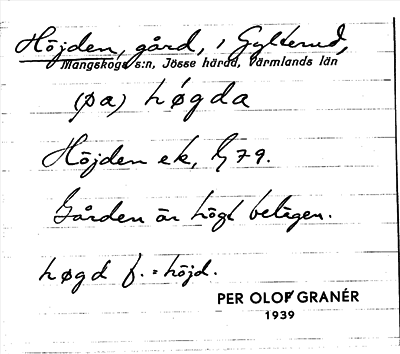 Höjden, gård, i Gylterud,
Mangskogs s:n, Jösse härad, Värmlands län
(på) høgda
Höjden ek, G 79.
Gården är högt belägen.
høgd f. = höjd.
PER OLOF GRANÉR
1939